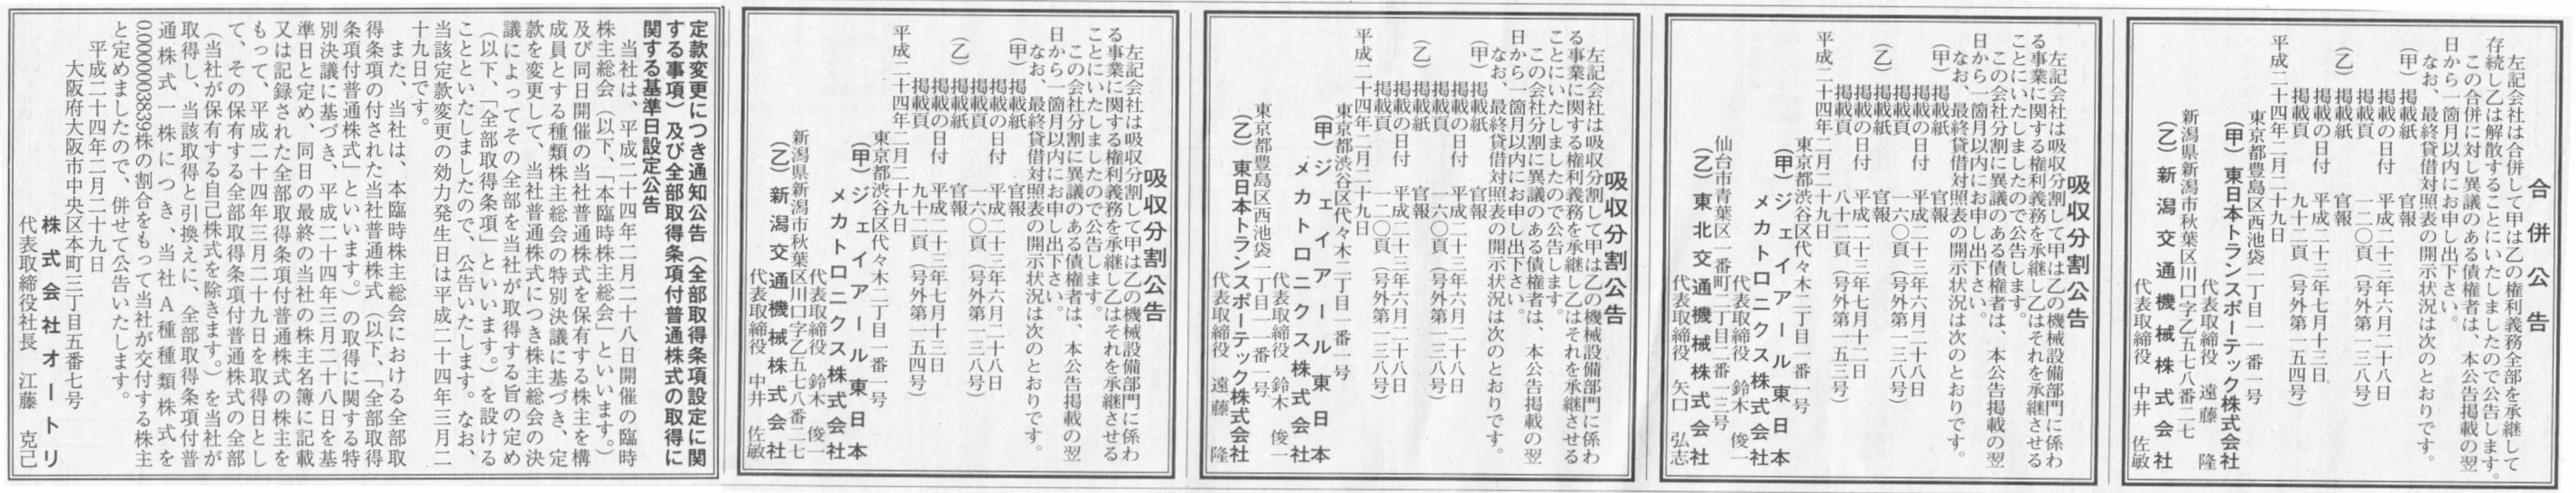 合併公告
左記会社は合併して甲は乙の権利義務全部を承継して
存続し乙は解散することにいたしましたので公告します。
この合併に対し異議のある債権者は、本公告掲載の翌
日から一箇月以内にお申し出下さい。
なお、最終貸借対照表の開示状況は次のとおりです。
(甲)掲載紙 官報
掲載の日付 平成二十三年六月二十八日
掲載頁 一二〇頁(号外第一三八号)
(乙)掲載紙 官報
掲載の日付 平成二十三年七月十三日
掲載頁 九十二頁(号外第一五四号)
平成二十四年二月二十九日
東京都豊島区西池袋一丁目一一番一号
(甲)東日本トランスポーテック株式会社
代表取締役 遠藤 隆
新潟県新潟市秋葉区川口字乙五七八番二七
(乙)新潟交通機械株式会社
代表取締役 中井 佐敏
吸収分割公告
左記会社は吸収分割して甲は乙の機械設備部門に係わ
る事業に関する権利義務を承継し乙はそれを承継させる
ことにいたしましたので公告します。
この会社分割に異議のある債権者は、本公告掲載の翌
日から一箇月以内にお申し出下さい。
なお、最終貸借対照表の開示状況は次のとおりです。
(甲)掲載紙 官報
掲載の日付 平成二十三年六月二十八日
掲載頁 一六〇頁(号外第一三八号)
(乙)掲載紙 官報
掲載の日付 平成二十三年七月十二日
掲載頁 八十二頁(号外第一五三号)
平成二十四年二月二十九日
東京都渋谷区代々木二丁目一番一号
(甲)ジェイアール東日本
メカトロニクス株式会社
代表取締役 鈴木 俊一
仙台市青葉区一番町二丁目二番一三号
(乙)東北交通機械株式会社
代表取締役 矢口 弘志
吸収分割公告
左記会社は吸収分割して甲は乙の機械設備部門に係わ
る事業に関する権利義務を承継し乙はそれを承継させる
ことにいたしましたので公告します。
この会社分割に異議のある債権者は、本公告掲載の翌
日から一箇月以内にお申し出下さい。
なお、最終貸借対照表の開示状況は次のとおりです。
(甲)掲載紙 官報
掲載の日付 平成二十三年六月二十八日
掲載頁 一六〇頁(号外第一三八号)
(乙)掲載紙 官報
掲載の日付 平成二十三年六月二十八日
掲載頁 一二〇頁(号外第一三八号)
平成二十四年二月二十九日
東京都渋谷区代々木二丁目一番一号
(甲)ジェイアール東日本
メカトロニクス株式会社
代表取締役 鈴木 俊一
東京都豊島区西池袋一丁目一一番一号
(乙)東日本トランスポーテック株式会社
代表取締役 遠藤 隆
吸収分割公告
左記会社は吸収分割して甲は乙の機械設備部門に係わ
る事業に関する権利義務を承継し乙はそれを承継させる
ことにいたしましたので公告します。
この会社分割に異議のある債権者は、本公告掲載の翌
日から一箇月以内にお申し出下さい。
なお、最終貸借対照表の開示状況は次のとおりです。
(甲)掲載紙 官報
掲載の日付 平成二十三年六月二十八日
掲載頁 一六〇頁(号外第一三八号)
(乙)掲載紙 官報
掲載の日付 平成二十三年七月十三日
掲載頁 九十二頁(号外第一五四号)
平成二十四年二月二十九日
東京都渋谷区代々木二丁目一番一号
(甲)ジェイアール東日本
メカトロニクス株式会社
代表取締役 鈴木 俊一
新潟県新潟市秋葉区川口字乙五七八番二七
(乙)新潟交通機械株式会社
代表取締役 中井 佐敏
定款変更につき通知公告(全部取得条項設定に関
する事項)及び全部取得条項付普通株式の取得に
関する基準日設定公告
当社は、平成二十四年二月二十八日開催の臨時
株主総会(以下、「本臨時株主総会」といいます。)
及び同日開催の当社普通株式を保有する株主を構
成員とする種類株主総会の特別決議に基づき、定
款を変更して、当社普通株式につき株主総会の決
議によってその全部を当社が取得する旨の定め
(以下、「全部取得条項」といいます。)を設ける
ことといたしましたので、公告いたします。なお、
当該定款変更の効力発生日は平成二十四年三月二
十九日です。
また、当社は、本臨時株主総会における全部取
得条項の付された当社普通株式(以下、「全部取得
条項付普通株式」といいます。)の取得に関する特
別決議に基づき、平成二十四年三月二十八日を基
準日と定め、同日の最終の当社の株主名簿に記載
又は記録された全部取得条項付普通株式の株主を
もって、平成二十四年三月二十九日を取得日とし
て、その保有する全部取得条項付普通株式の全部
(当社が保有する自己株式を除きます。)を当社が
取得し、当該取得と引換えに、全部取得条項付普
通株式一株につき、当社A種種類株式を
0.0000003839株の割合をもって当社が交付する株主
と定めましたので、併せて公告いたします。
平成二十四年二月二十九日
大阪府大阪市中央区本町三丁目五番七号
株式会社オートリ
代表取締役社長 江藤 克己